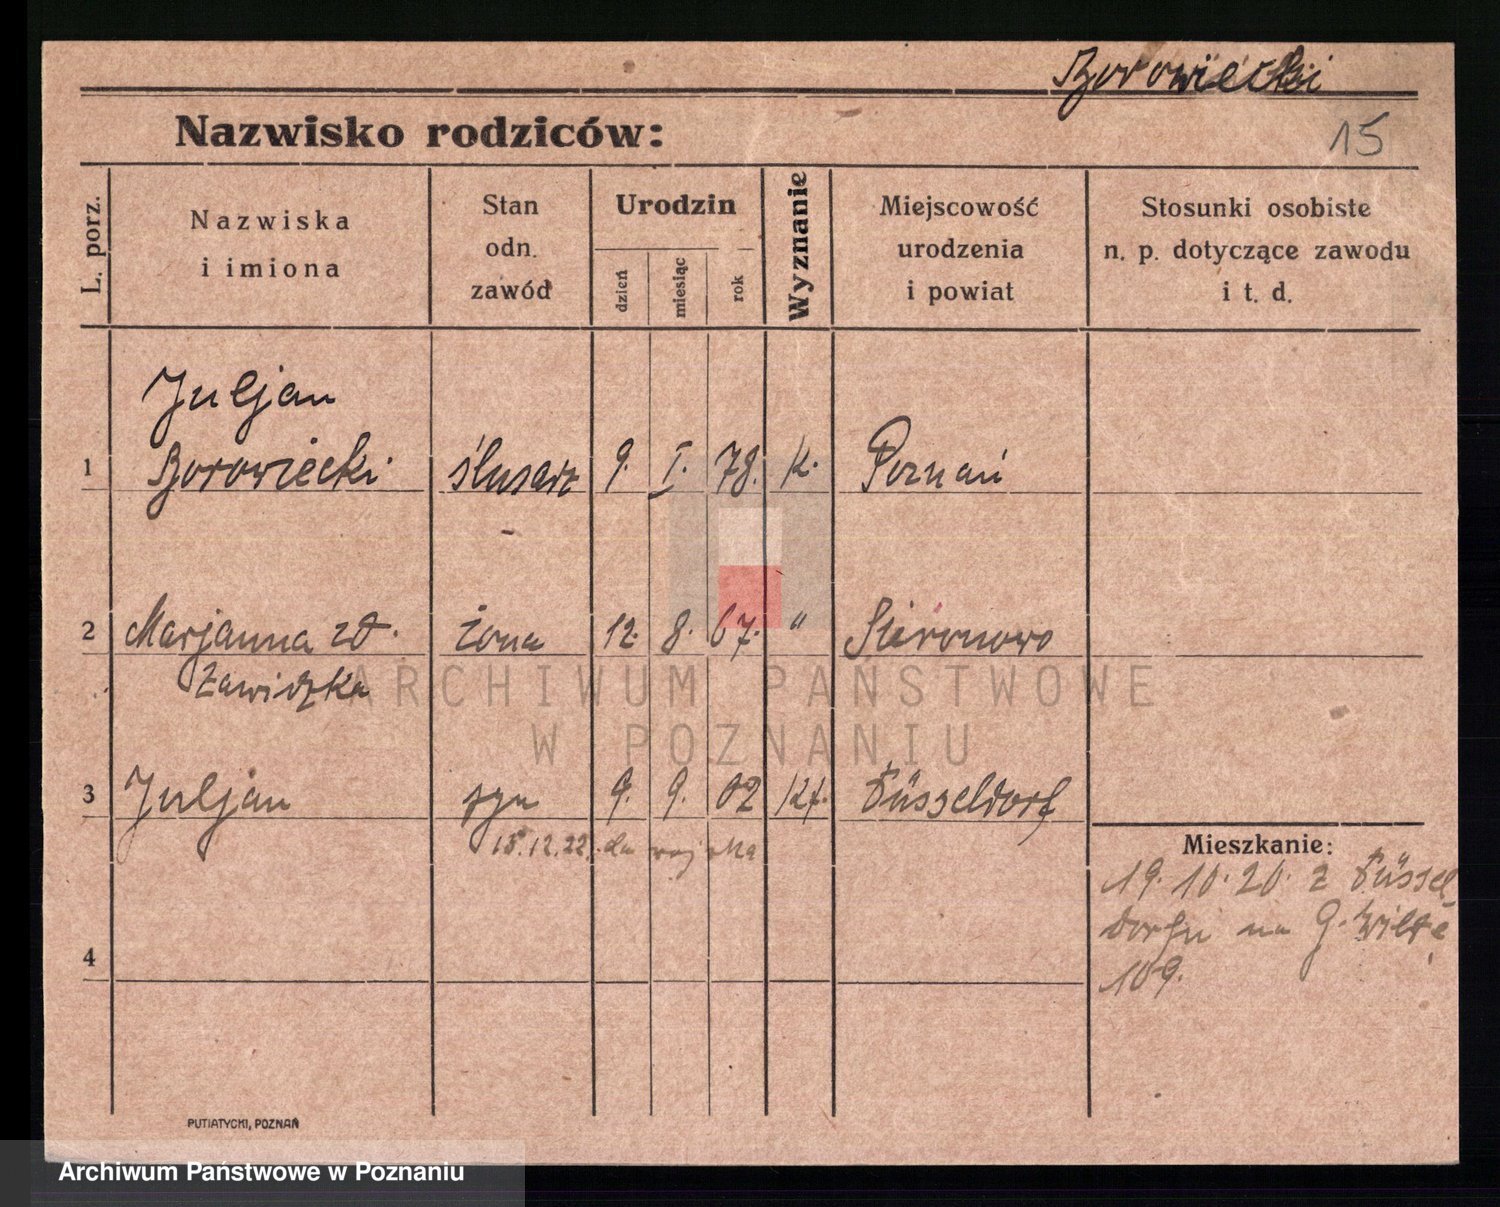 Borowiecki
Nazwisko rodziców:
15
L. porz.
Nazwiska
i imiona
Stan
odn.
zawód
Urodzin
dzień
miesiąc
rok
Wyznanie
Miejscowość
urodzenia
i powiat
Stosunki osobiste
n. p. dotyczące zawodu
i t. d.
Juljan
1 Borowiecki ślusarz 9. I. 78. k. Poznań
2 Marjanna zd. żona 12. 8. 67. "
Zawidzka
ARCHIWUM PAŃSTWOWE
W POZNANIU
3 Juljan syn 9. 9. 02 kt. Düsseldorf
15.12.22. do wojska
Mieszkanie:
19. 10. 20. z Düssel
dorfu na G. Wildę
109.
4
PUTIATYCKI, POZNAŃ
Archiwum Państwowe w Poznaniu